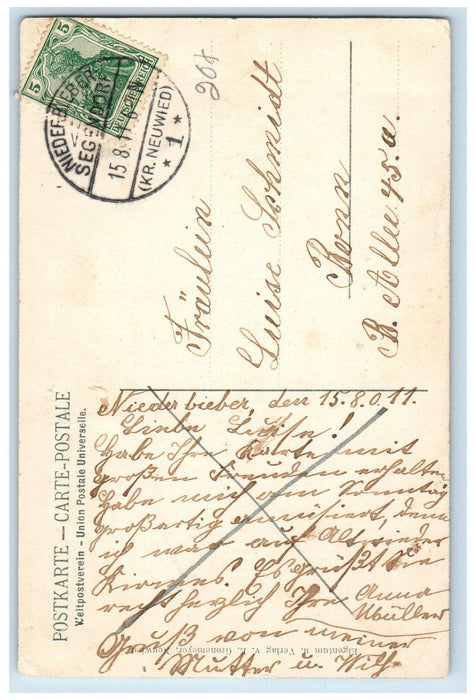 5 5
DEUTSCHES REICH
NIEDERBIEBER-
SEGENDORF
15.8.11. 6-7 N
(KR. NEUWIED)
* 1 *
20f
Fräulein
Luise Schmidt
Bonn
B. Allee 45.a.
POSTKARTE — CARTE-POSTALE
Weltpostverein - Union Postale Universelle.
Niederbieber, den 15.8.0.11.
Liebe Luise!
Habe Ihre Karte mit
großen Freuden erhalten
Habe mich am Sonntag
großartig amüsiert, denn
ich war auf Altwieder
Kirmes. Es grüßt Sie
recht herzlich Ihre Anna
Müller
Gruß von meiner
Mutter u. Wilh.
Eigentum u. Verlag v. L. Gronemeyer, Neuwied